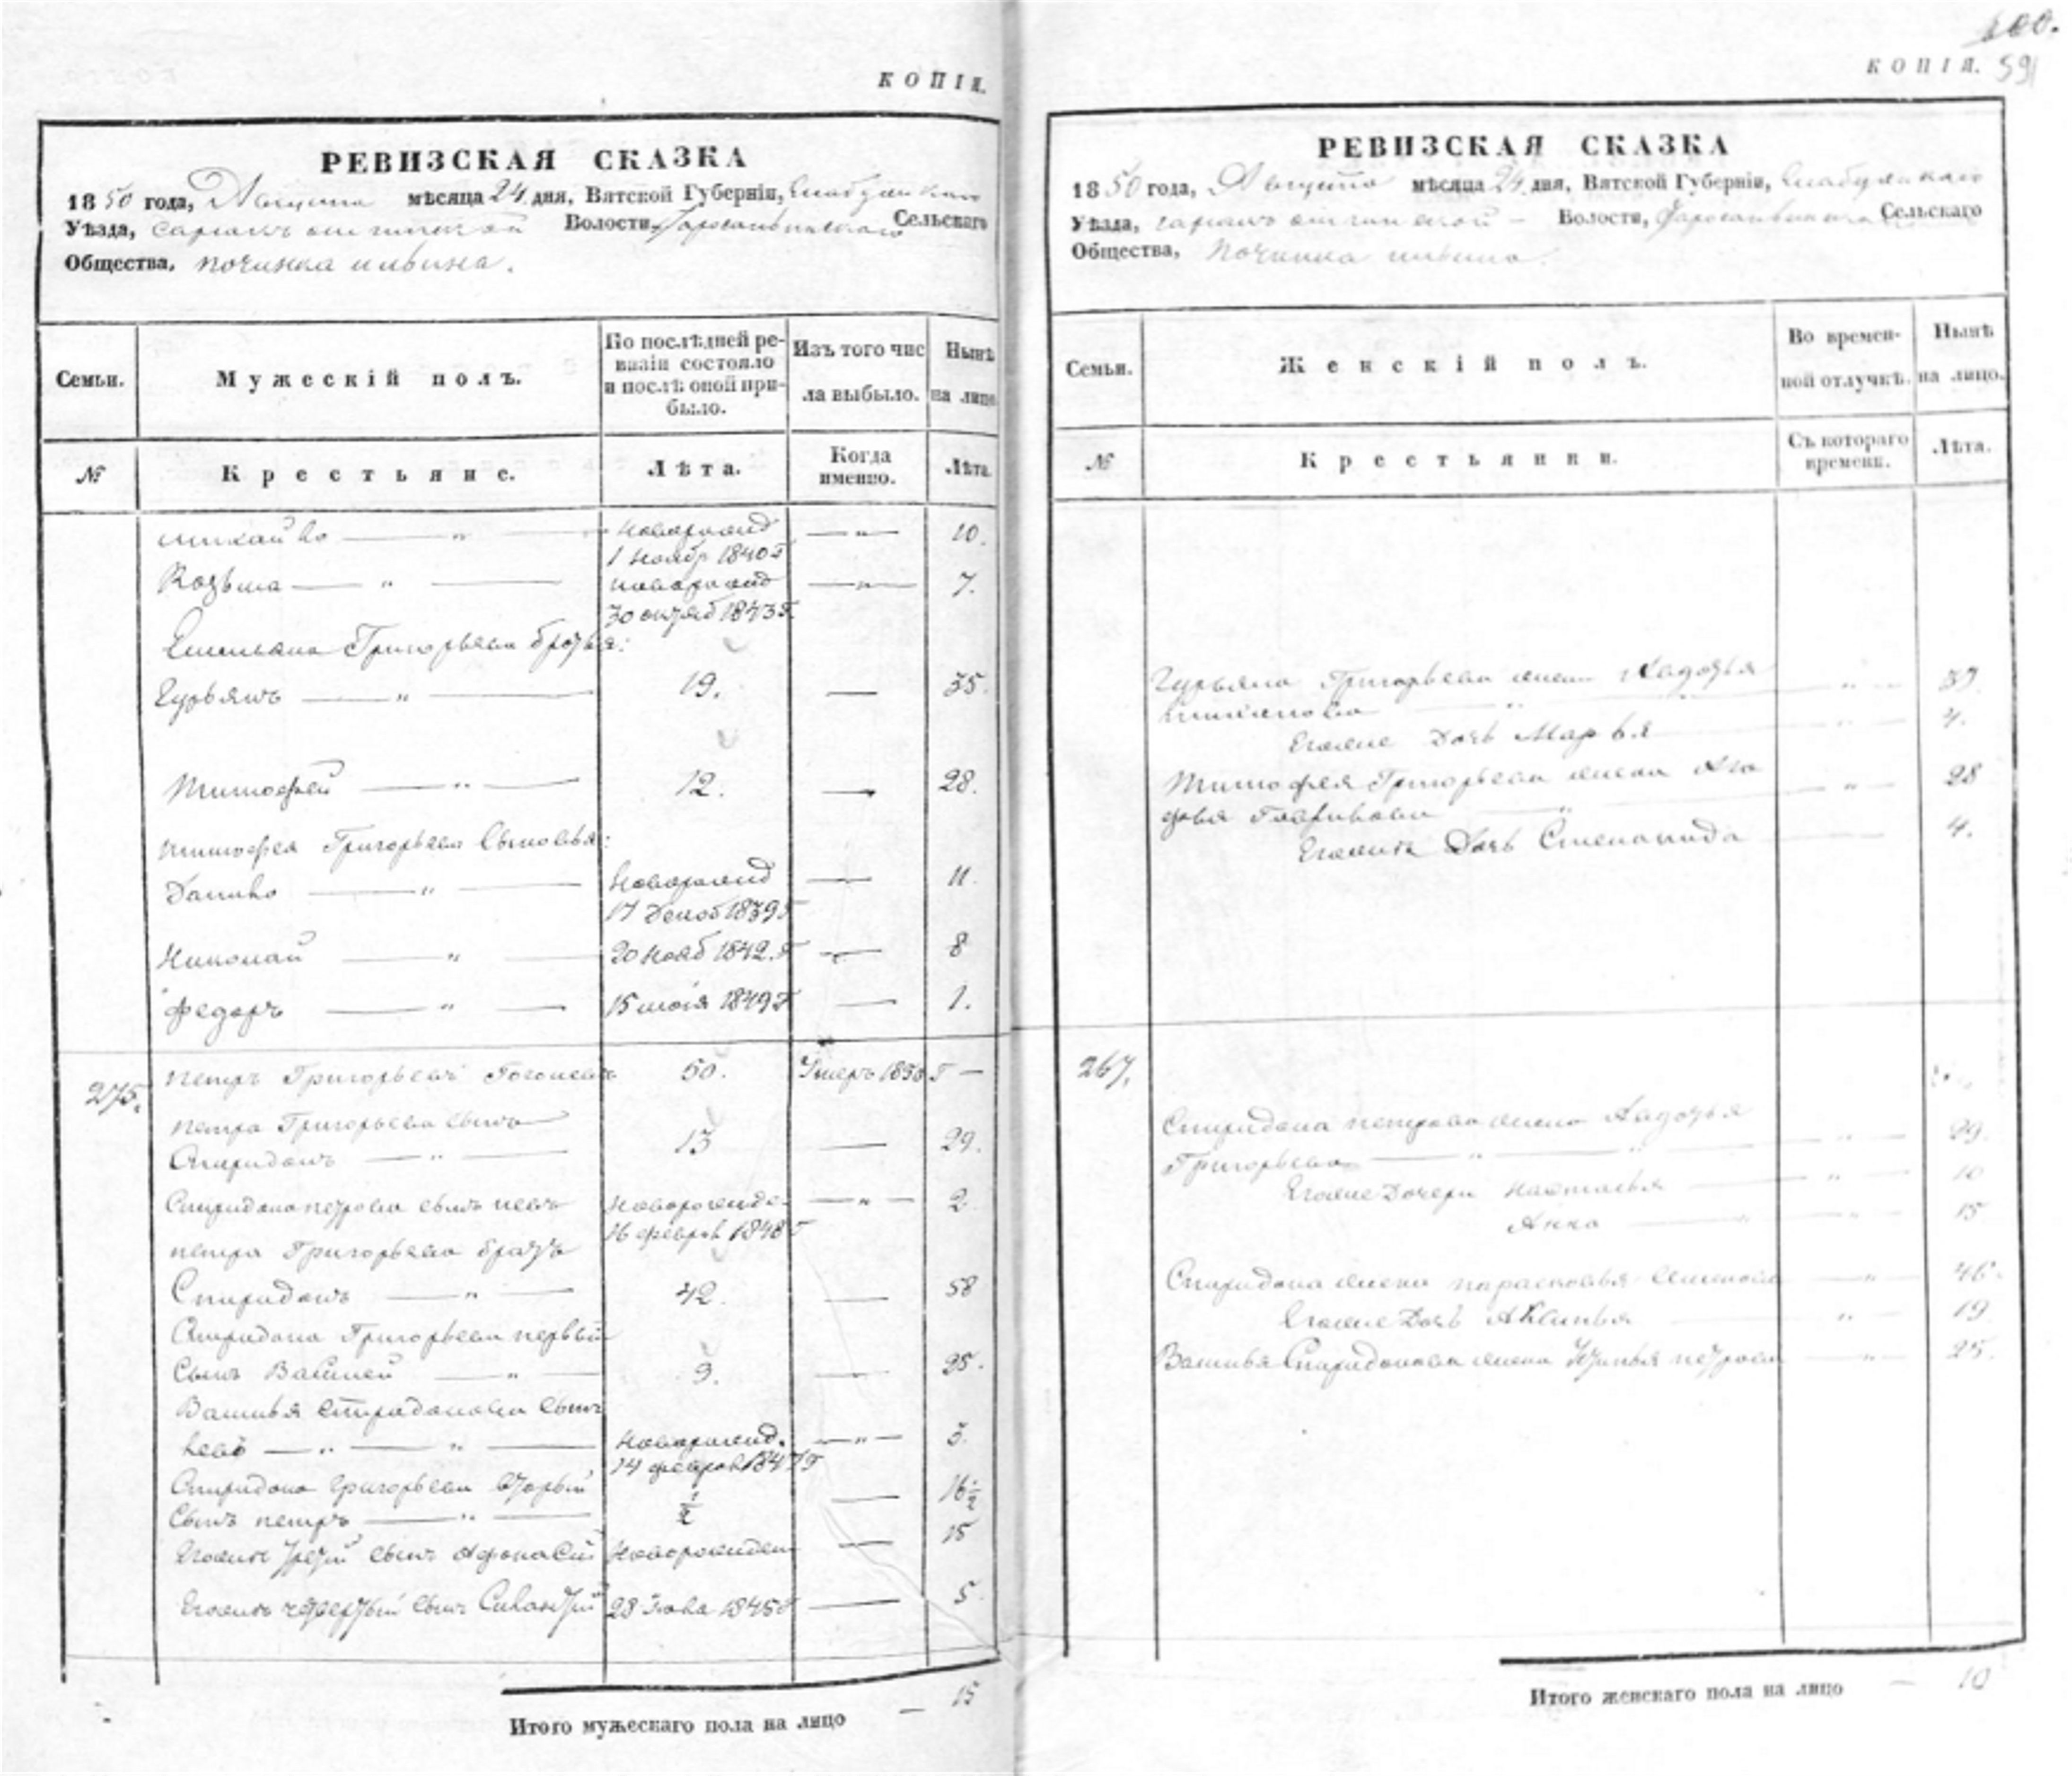 КОПІЯ.
РЕВИЗСКАЯ СКАЗКА
1850 года, Августа мѣсяца 24 дня, Вятской Губерніи, Елабужскаго
Уѣзда, Волости, Сельскаго
Общества, починка ильина.
Семьи.
Мужескій полъ.
По послѣдней ре-
визіи состояло
и послѣ оной при-
было.
Изъ того чис
ла выбыло.
Нынѣ
на лицо
№
Крестьяне.
Лѣта.
Когда
именно.
Лѣта.
михайло — " — новорожд — " — 10.
1 Ноябр 1840 г
Козьма — " — новорожд — " — 7.
30 октяб 1843 г.
Емельяна Григорьева братья:
Гурьянъ — " — 19. — 35.
Тимофей — " — 12. — 28.
тимофея Григорьева Сыновья:
Данило — " — Новорожд — 11.
17 Декаб 1839 г
Николай — " — 20 Нояб 1842. г — 8
федоръ — " — 15 1849 г — 1.
275. петръ Григорьевъ 50. Умеръ 1850 г —
петра Григорьева сынъ
Спиридонъ — " — 13 — 29.
Спиридона петрова сынъ левъ Новорожде- — " — 2
16 феврал 1848 г
петра Григорьева братъ
Спиридонъ — " — 42. — 58
Спиридона Григорьева первый
Сынъ Василей — " — 9. — 25.
Василья Спиридонова Сынъ
левъ — " — " — Новорожд. — " — 3.
14 феврал 1847 г
Спиридона Григорьева второй
Сынъ петръ — " — 1/2 — 16 1/2
Егоже третій сынъ Афонасій Новорожден — 15
Егоже четвертый сынъ 28 1845 г — 5
Итого мужескаго пола на лицо — 15
100.
КОПІЯ. 59
РЕВИЗСКАЯ СКАЗКА
1850 года, Августа мѣсяца 24 дня, Вятской Губерніи, Елабужскаго
Уѣзда, Волости, Сельскаго
Общества, Починка ильина.
Семьи.
Женскій полъ.
Во времен-
ной отлучкѣ.
Нынѣ
на лицо.
№
Крестьянки.
Съ котораго
времени.
Лѣта.
Гурьяна Григорьева жена Авдотья
— " — " — 39
Егоже Дочь Марья — " — 4.
Тимофея Григорьева жена Ага
фья Гаврилова — " — " — 28
Егоже Дочь Степанида — 4.
267.
Спиридона петрова жена Авдотья
Григорьева — " — " — " — 29.
Егоже Дочери Настасья — " — 10
Анна — " — " — 15
Спиридона жена парасковья Семенова — " — 46.
Егоже Дочь Аксинья — " — 19
Василья Спиридонова жена Устинья петрова — " — 25.
Итого женскаго пола на лицо — 10